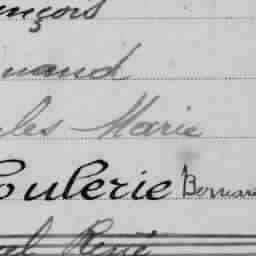 ençois
nand
les Marie
Culerie Bernard
el René